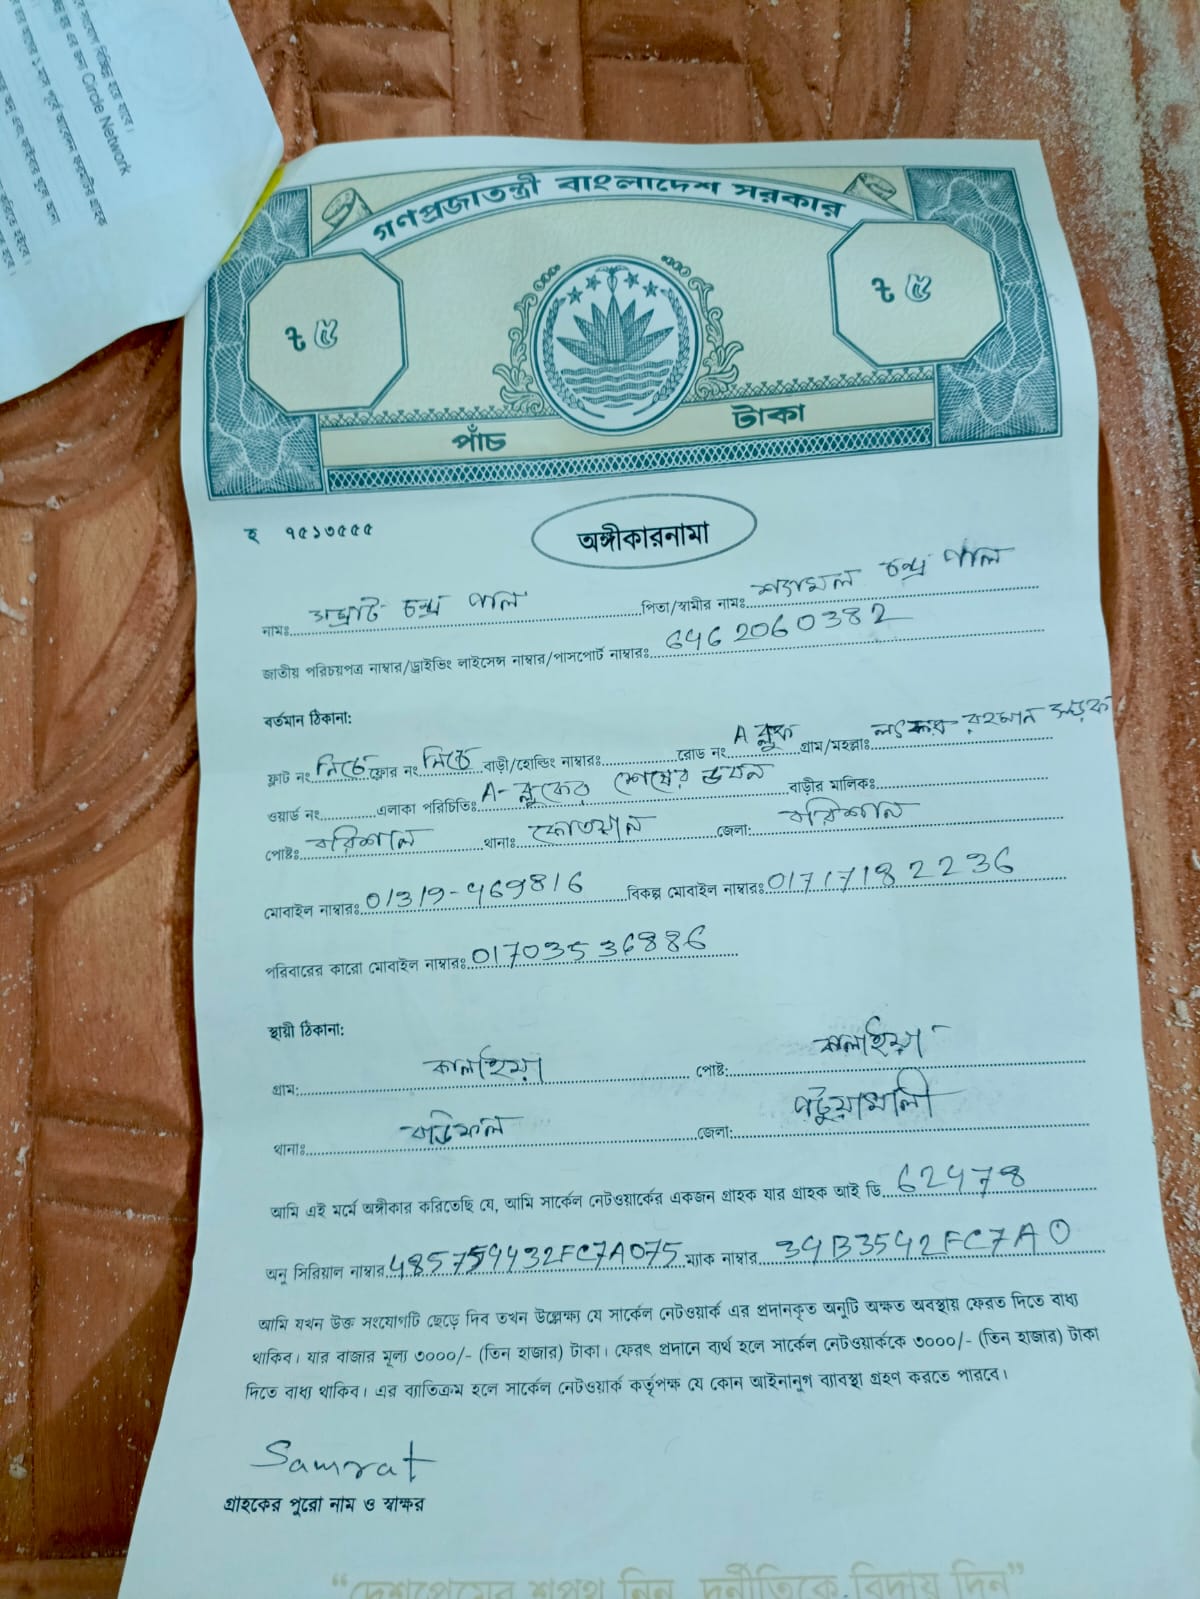 Circle Network
গণপ্রজাতন্ত্রী বাংলাদেশ সরকার
৳ ৫
৳ ৫
পাঁচ টাকা
হ ৭৫১৩৫৫৫
অঙ্গীকারনামা
নামঃ সম্রাট চন্দ্র পাল পিতা/স্বামীর নামঃ শ্যামল চন্দ্র পাল
জাতীয় পরিচয়পত্র নাম্বার/ড্রাইভিং লাইসেন্স নাম্বার/পাসপোর্ট নাম্বারঃ 6462060382
বর্তমান ঠিকানা:
ফ্লাট নং নিচে ফ্লোর নং নিচে বাড়ী/হোল্ডিং নাম্বারঃ রোড নং A ব্লক গ্রাম/মহল্লাঃ রহমান সড়ক
ওয়ার্ড নং এলাকা পরিচিতিঃ A-ব্লকের শেষের ভবন বাড়ীর মালিকঃ
পোষ্টঃ বরিশাল থানাঃ কোতয়ালি জেলা: বরিশাল
মোবাইল নাম্বারঃ 01319-469816 বিকল্প মোবাইল নাম্বারঃ 01717182236
পরিবারের কারো মোবাইল নাম্বারঃ 01703536886
স্থায়ী ঠিকানা:
গ্রাম: কালাইয়া পোষ্ট: কালাইয়া
থানাঃ বাউফল জেলা: পটুয়াখালী
আমি এই মর্মে অঙ্গীকার করিতেছি যে, আমি সার্কেল নেটওয়ার্কের একজন গ্রাহক যার গ্রাহক আই ডি 62478
অনু সিরিয়াল নাম্বার 485754432FC7A075 ম্যাক নাম্বার 34B3542FC7A0
আমি যখন উক্ত সংযোগটি ছেড়ে দিব তখন উল্লেক্ষ্য যে সার্কেল নেটওয়ার্ক এর প্রদানকৃত অনুটি অক্ষত অবস্থায় ফেরত দিতে বাধ্য
থাকিব। যার বাজার মূল্য ৩০০০/- (তিন হাজার) টাকা। ফেরৎ প্রদানে ব্যর্থ হলে সার্কেল নেটওয়ার্ককে ৩০০০/- (তিন হাজার) টাকা
দিতে বাধ্য থাকিব। এর ব্যাতিক্রম হলে সার্কেল নেটওয়ার্ক কর্তৃপক্ষ যে কোন আইনানুগ ব্যাবস্থা গ্রহণ করতে পারবে।
Samrat
গ্রাহকের পুরো নাম ও স্বাক্ষর
“দেশপ্রেমের শপথ নিন, দুর্নীতিকে বিদায় দিন”